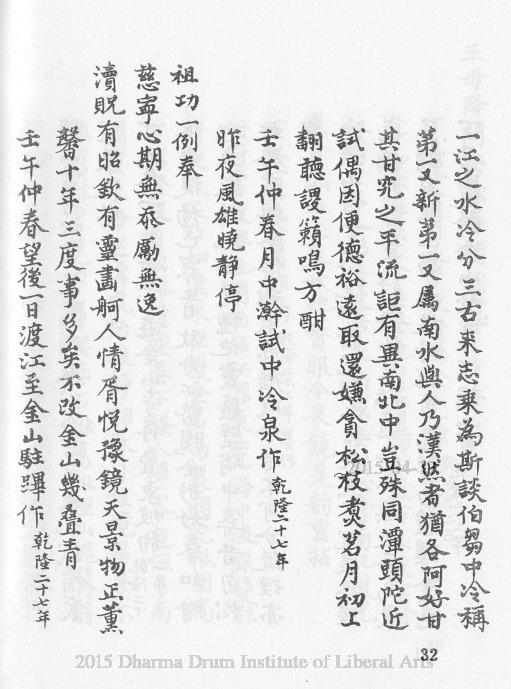 一江之水冷分三古來志乘為斯談伯芻中冷稱
第一又新第一又屬南水與人乃漠然者猶各阿好甘
其甘究之平流詎有異南北中豈殊同潭頭陀近
試偶因便德裕遠取還嫌貪松枝煑茗月初上
翻聽謖籟鳴方酣
壬午仲春月中澣試中冷泉作 乾隆二十七年
昨夜風雄曉静停
祖功一例奉
慈寧心期無忝勵無逸
瀆貺有昭欽有靈畫舸人情胥悅豫鏡天景物正薰
馨十年三度事多矣不改金山幾疊青
壬午仲春望後一日渡江至金山駐蹕作 乾隆二十七年
32
2015 Dharma Drum Institute of Liberal Arts